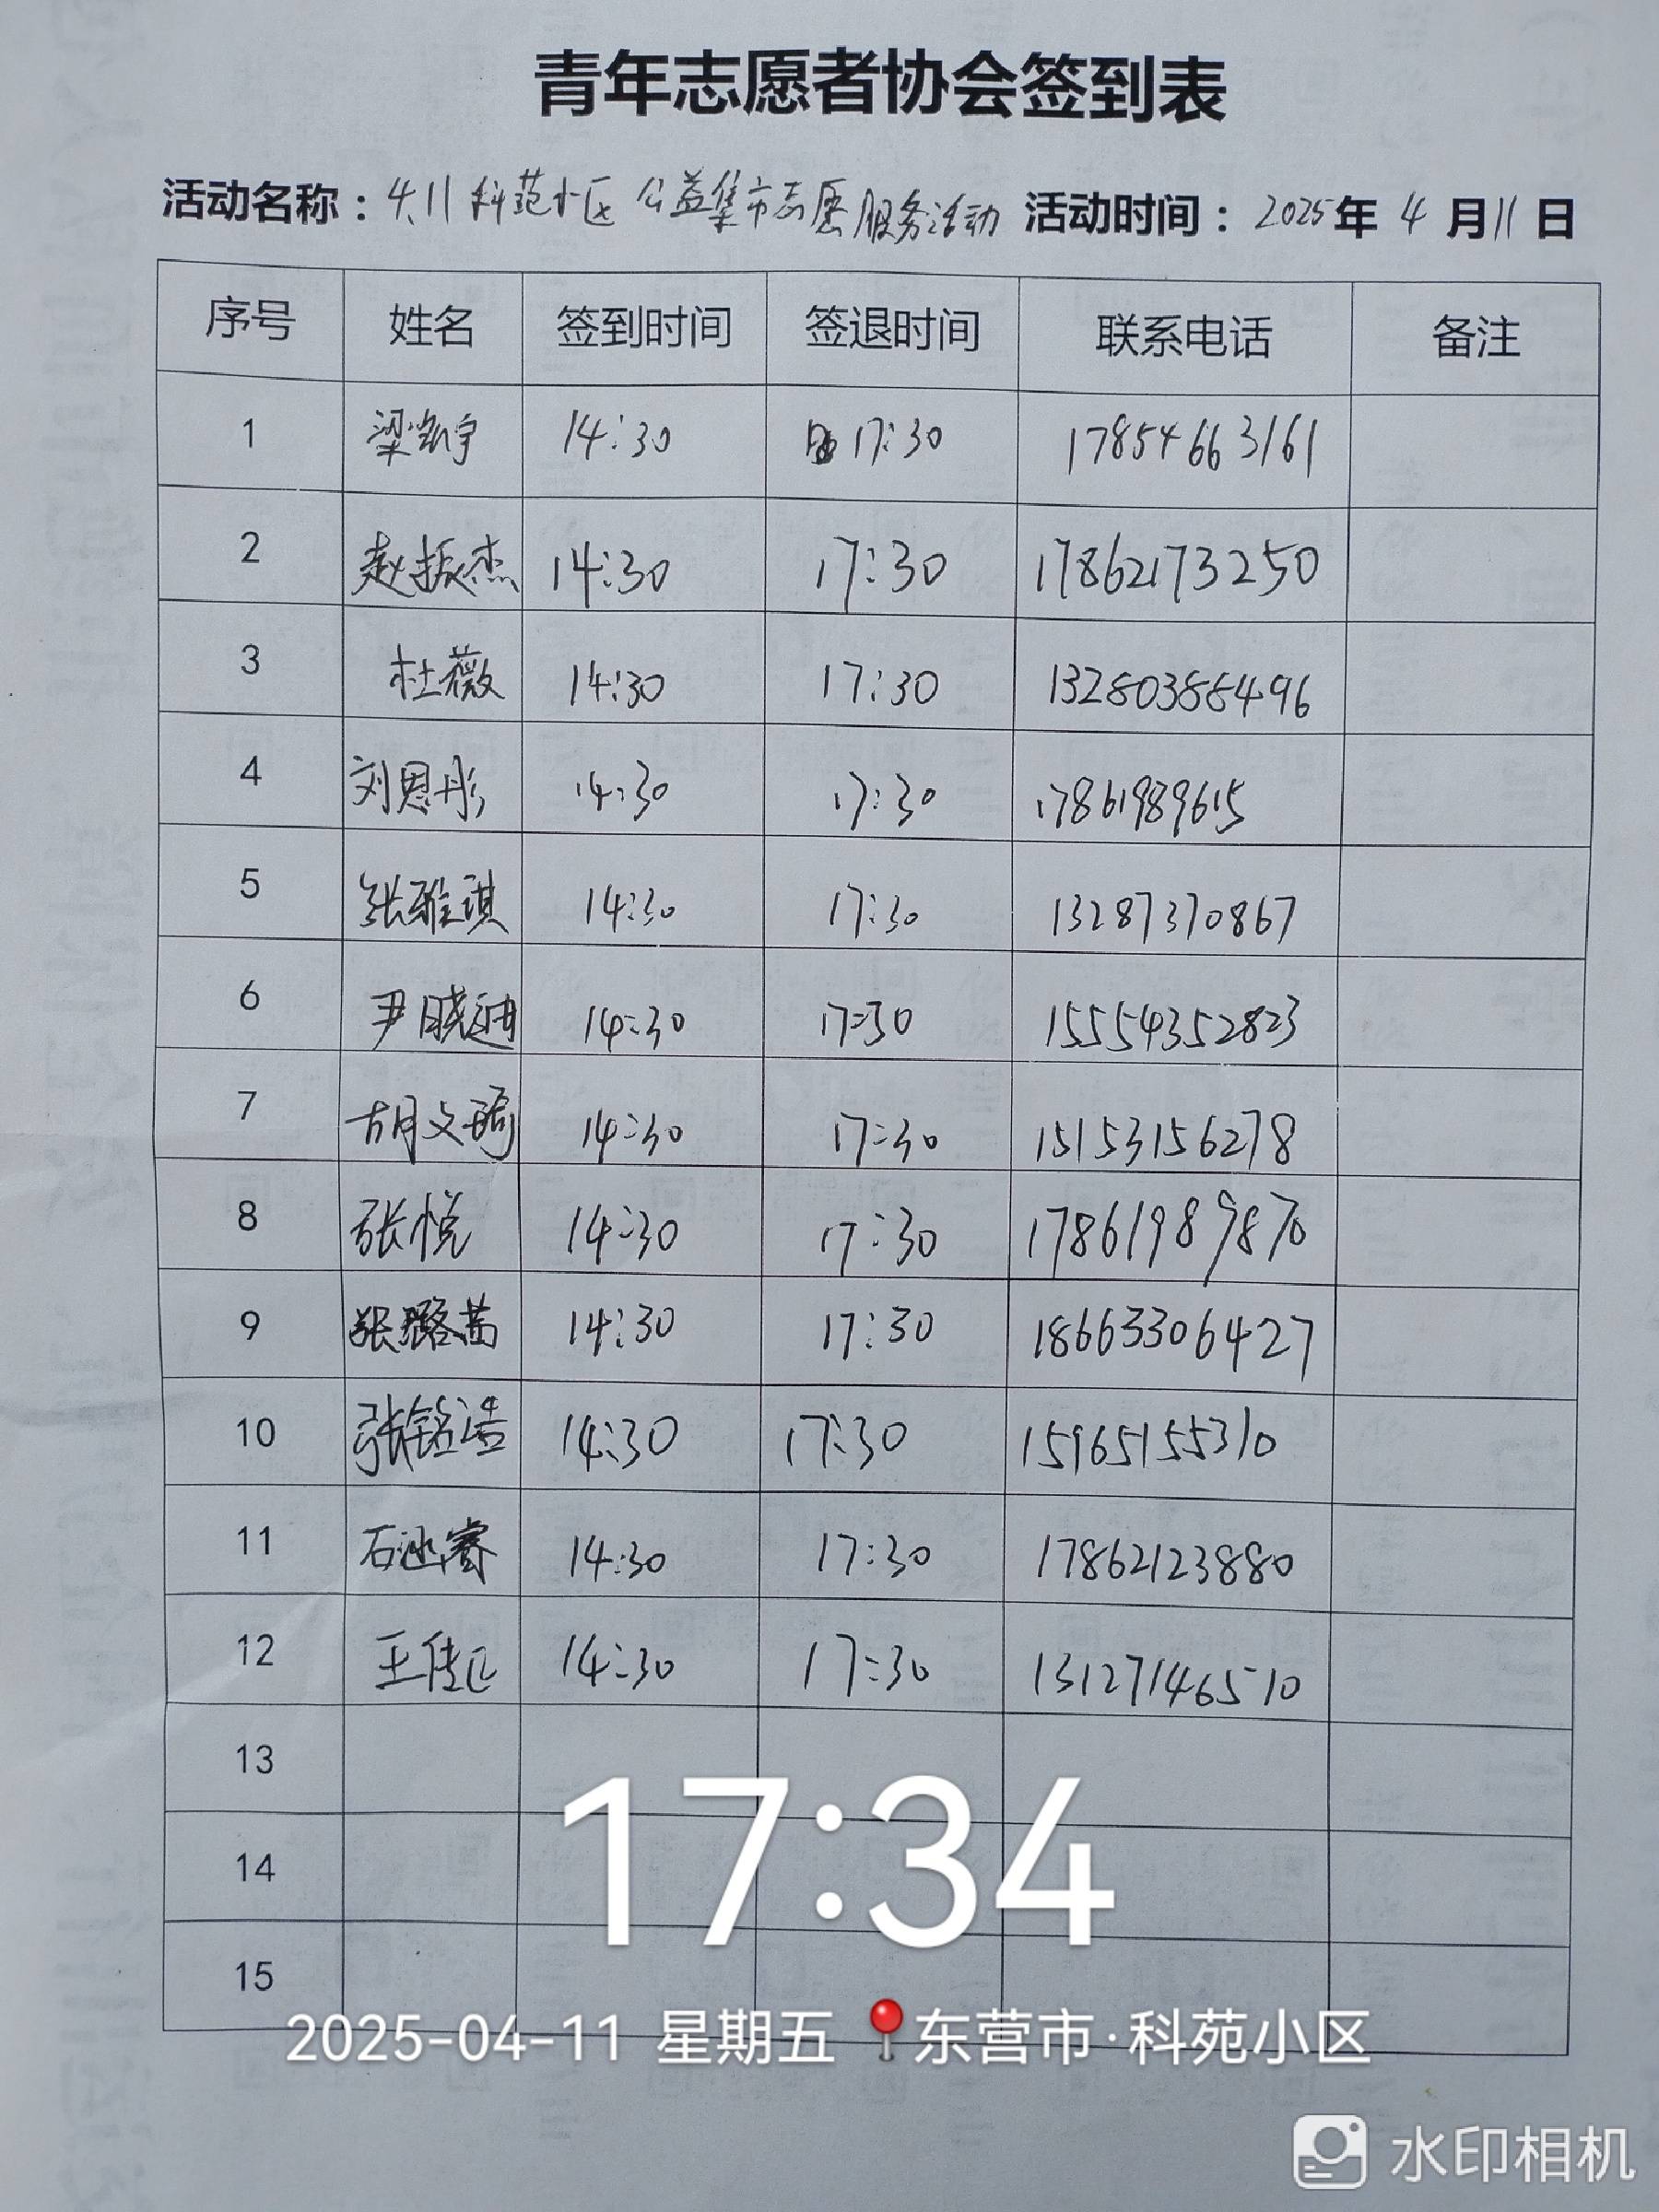 青年志愿者协会签到表
活动名称：4.11 科苑小区 公益集市志愿服务活动 活动时间：2025年 4 月11 日
序号 姓名 签到时间 签退时间 联系电话 备注
1 梁凯宇 14:30 17:30 17854663161
2 赵振杰 14:30 17:30 17862173250
3 杜薇 14:30 17:30 13280388496
4 刘恩彤 14:30 17:30 17861989615
5 张雅琪 14:30 17:30 13287370867
6 尹晓迪 14:30 17:30 15554352823
7 胡文琦 14:30 17:30 15153156278
8 张悦 14:30 17:30 17861989870
9 张璐茜 14:30 17:30 18663306427
10 张铭浩 14:30 17:30 15965155310
11 石 睿 14:30 17:30 17862123880
12 王 14:30 17:30 13127146510
13
14
15
17:34
2025-04-11 星期五 东营市·科苑小区
水印相机